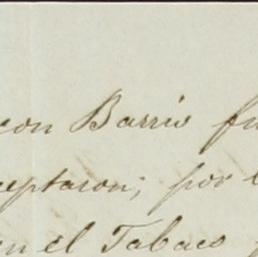 con Barrio fu
ceptaron; por l
en el Tabaco